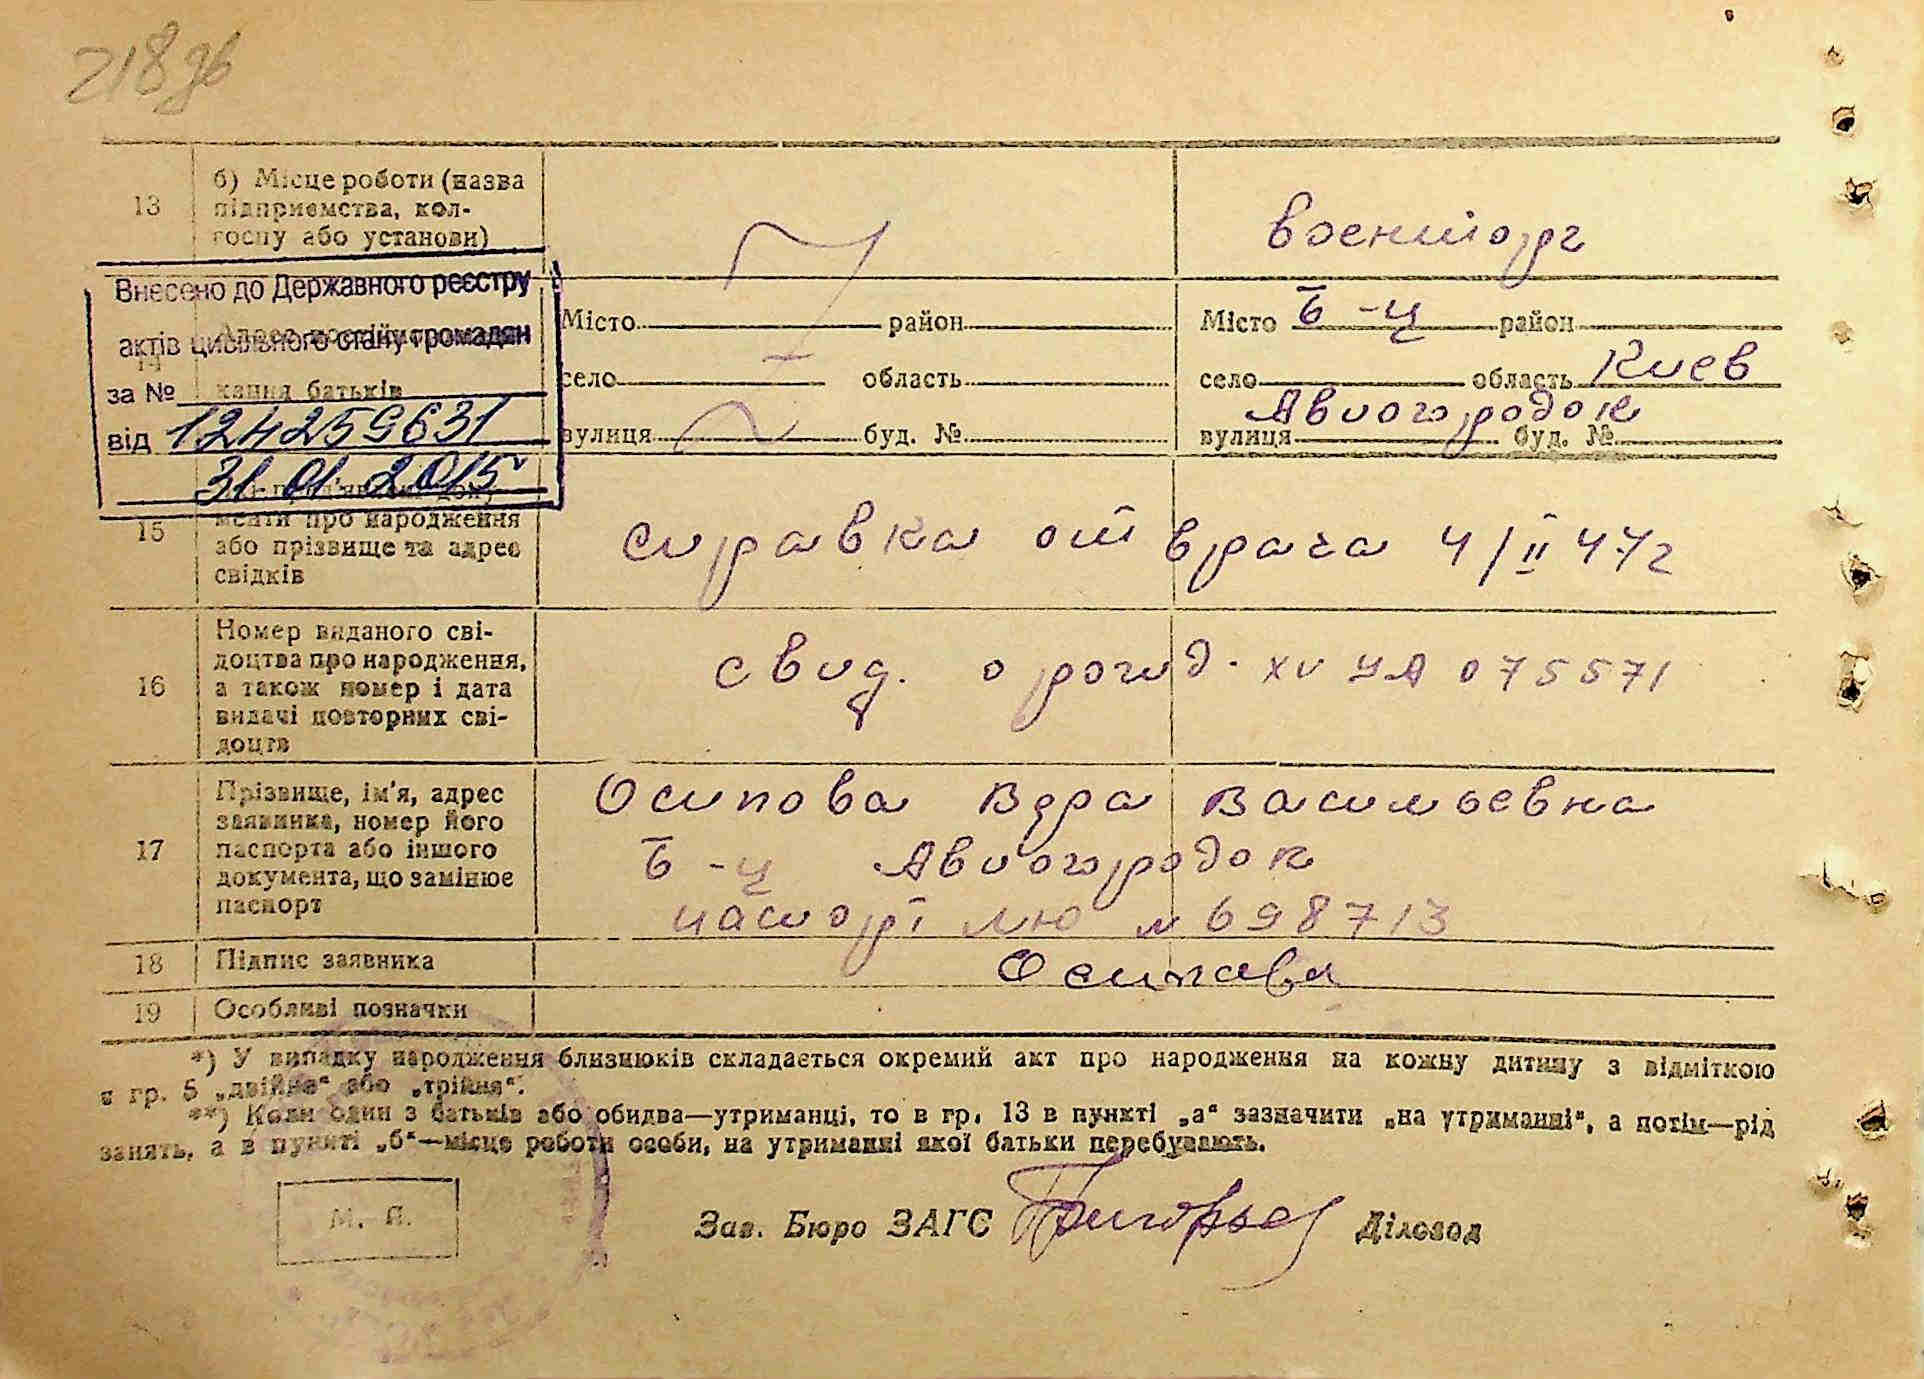 218 зв
13
б) Місце роботи (назва
підприємства, кол-
госпу або установи)
военторг
Внесено до Державного реєстру
актів цивільного стану громадян
за №
від 124259631
31.01.2015
14
кання батьків
Місто район
село область
вулиця буд. №
Місто Б-Ц район
село область Киев
Авиогородок
вулиця буд. №
15
менти про народження
або прізвище та адрес
свідків
справка от врача 4/II 47 г
16
Номер виданого сві-
доцтва про народження,
а також номер і дата
видачі повторних сві-
доцтв
свид. о рожд. XV УА 075571
17
Прізвище, ім'я, адрес
заявника, номер його
паспорта або іншого
документа, що замінює
паспорт
Осипова Вера Васильевна
Б-Ц Авиогородок
паспорт №698713
18
Підпис заявника
Осипова
19
Особливі позначки
*) У випадку народження близнюків складається окремий акт про народження на кожну дитину з відміткою
в гр. 5 „двійня“ або „трійня“.
**) Коли один з батьків або обидва—утриманці, то в гр. 13 в пункті „а“ зазначити „на утриманні“, а потім—рід
занять, а в пункті „б“—місце роботи особи, на утриманні якої батьки перебувають.
М. П.
Зав. Бюро ЗАГС
Діловод